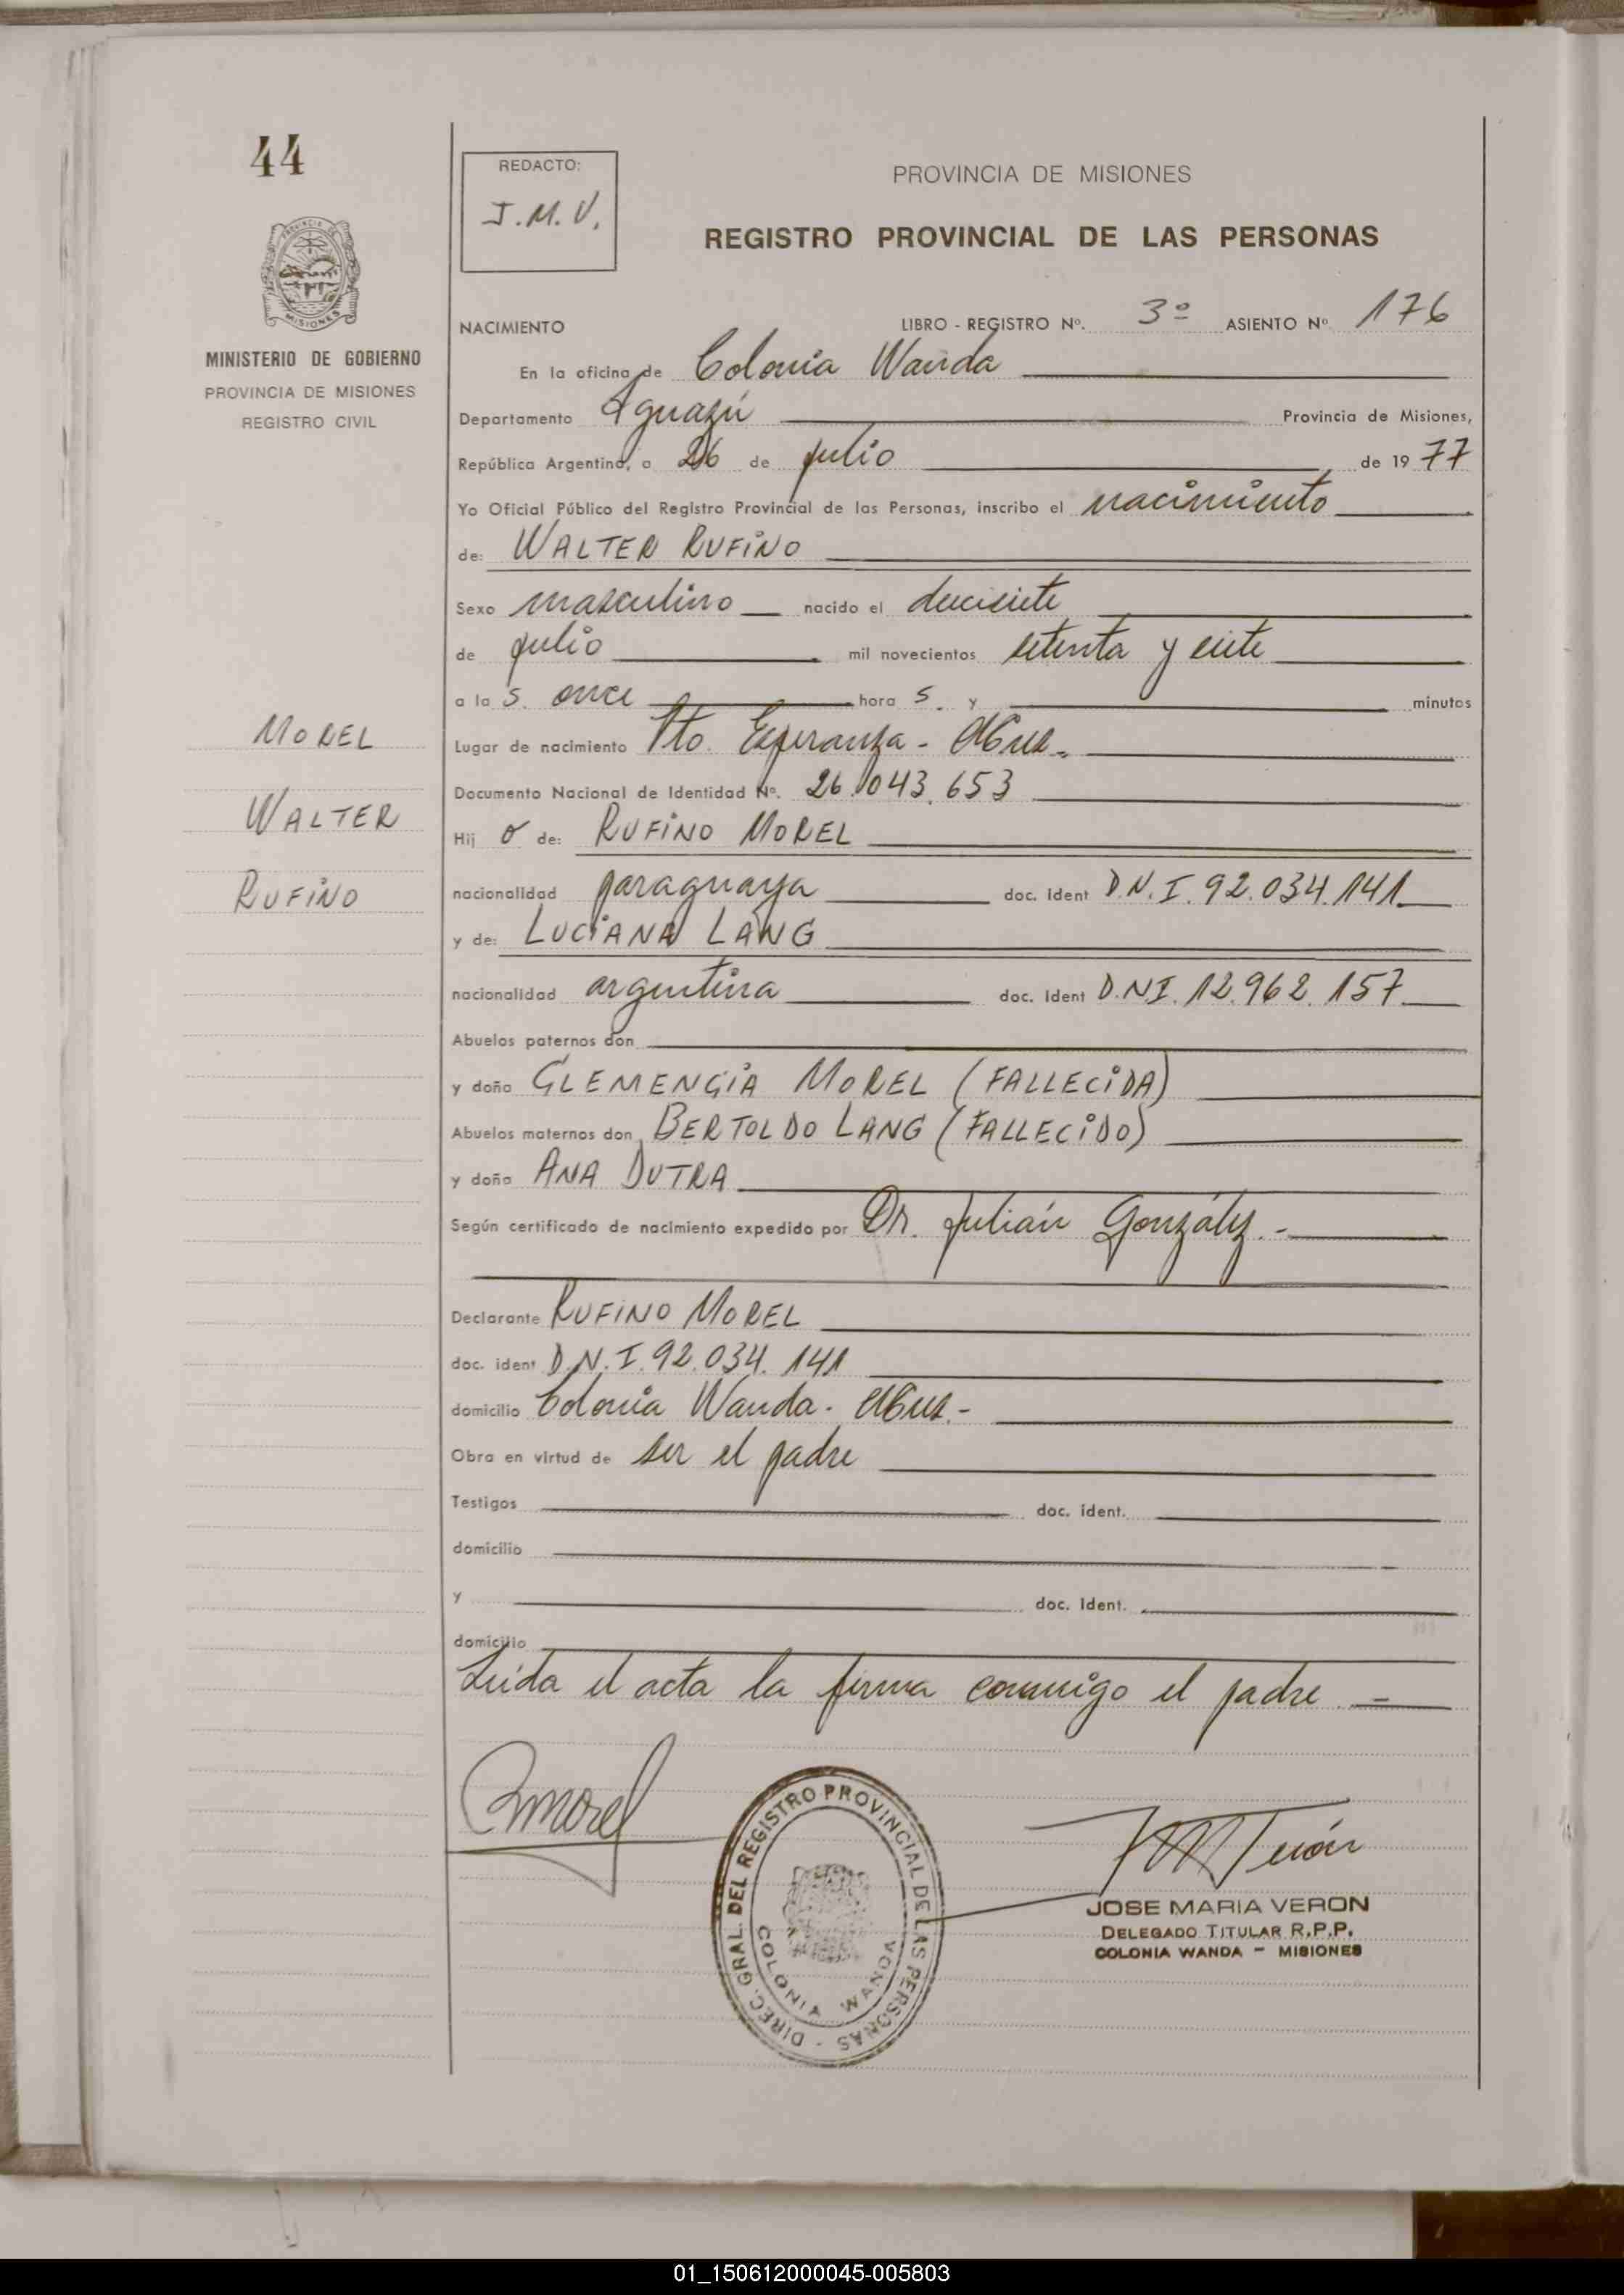 44
REDACTO:
J.M.V.
PROVINCIA DE MISIONES
REGISTRO PROVINCIAL DE LAS PERSONAS
MINISTERIO DE GOBIERNO
PROVINCIA DE MISIONES
REGISTRO CIVIL
NACIMIENTO LIBRO - REGISTRO Nº. 3º ASIENTO Nº 176
En la oficina de Colonia Wanda
Departamento Iguazú Provincia de Misiones,
República Argentina, a 26 de julio de 19 77
Yo Oficial Público del Registro Provincial de las Personas, inscribo el nacimiento
de: WALTER RUFINO
Sexo masculino nacido el diecisiete
de julio mil novecientos setenta y siete
a la s. once hora s. y minutos
Lugar de nacimiento Pto. Esperanza - Mnes.
Documento Nacional de Identidad Nº. 26.043.653
Hij o de: RUFINO MOREL
nacionalidad paraguaya doc. Ident D.N.I. 92.034.141
y de: LUCIANA LANG
nacionalidad argentina doc. Ident D.N.I. 12.962.157
Abuelos paternos don
y doña CLEMENCIA MOREL (FALLECIDA)
Abuelos maternos don BERTOLDO LANG (FALLECIDO)
y doña ANA DUTRA
Según certificado de nacimiento expedido por Dr. Julián González.-
Declarante RUFINO MOREL
doc. ident D.N.I. 92.034.141
domicilio Colonia Wanda - Mnes.-
Obra en virtud de ser el padre
Testigos doc. ident.
domicilio
y doc. Ident.
domicilio
Leída el acta la firma conmigo el padre.-
MOREL
WALTER
RUFINO
RMorel
DIREC. GRAL. DEL REGISTRO PROVINCIAL DE LAS PERSONAS -
COLONIA WANDA
JMVerón
JOSE MARIA VERON
DELEGADO TITULAR R.P.P.
COLONIA WANDA - MISIONES
01_150612000045-005803